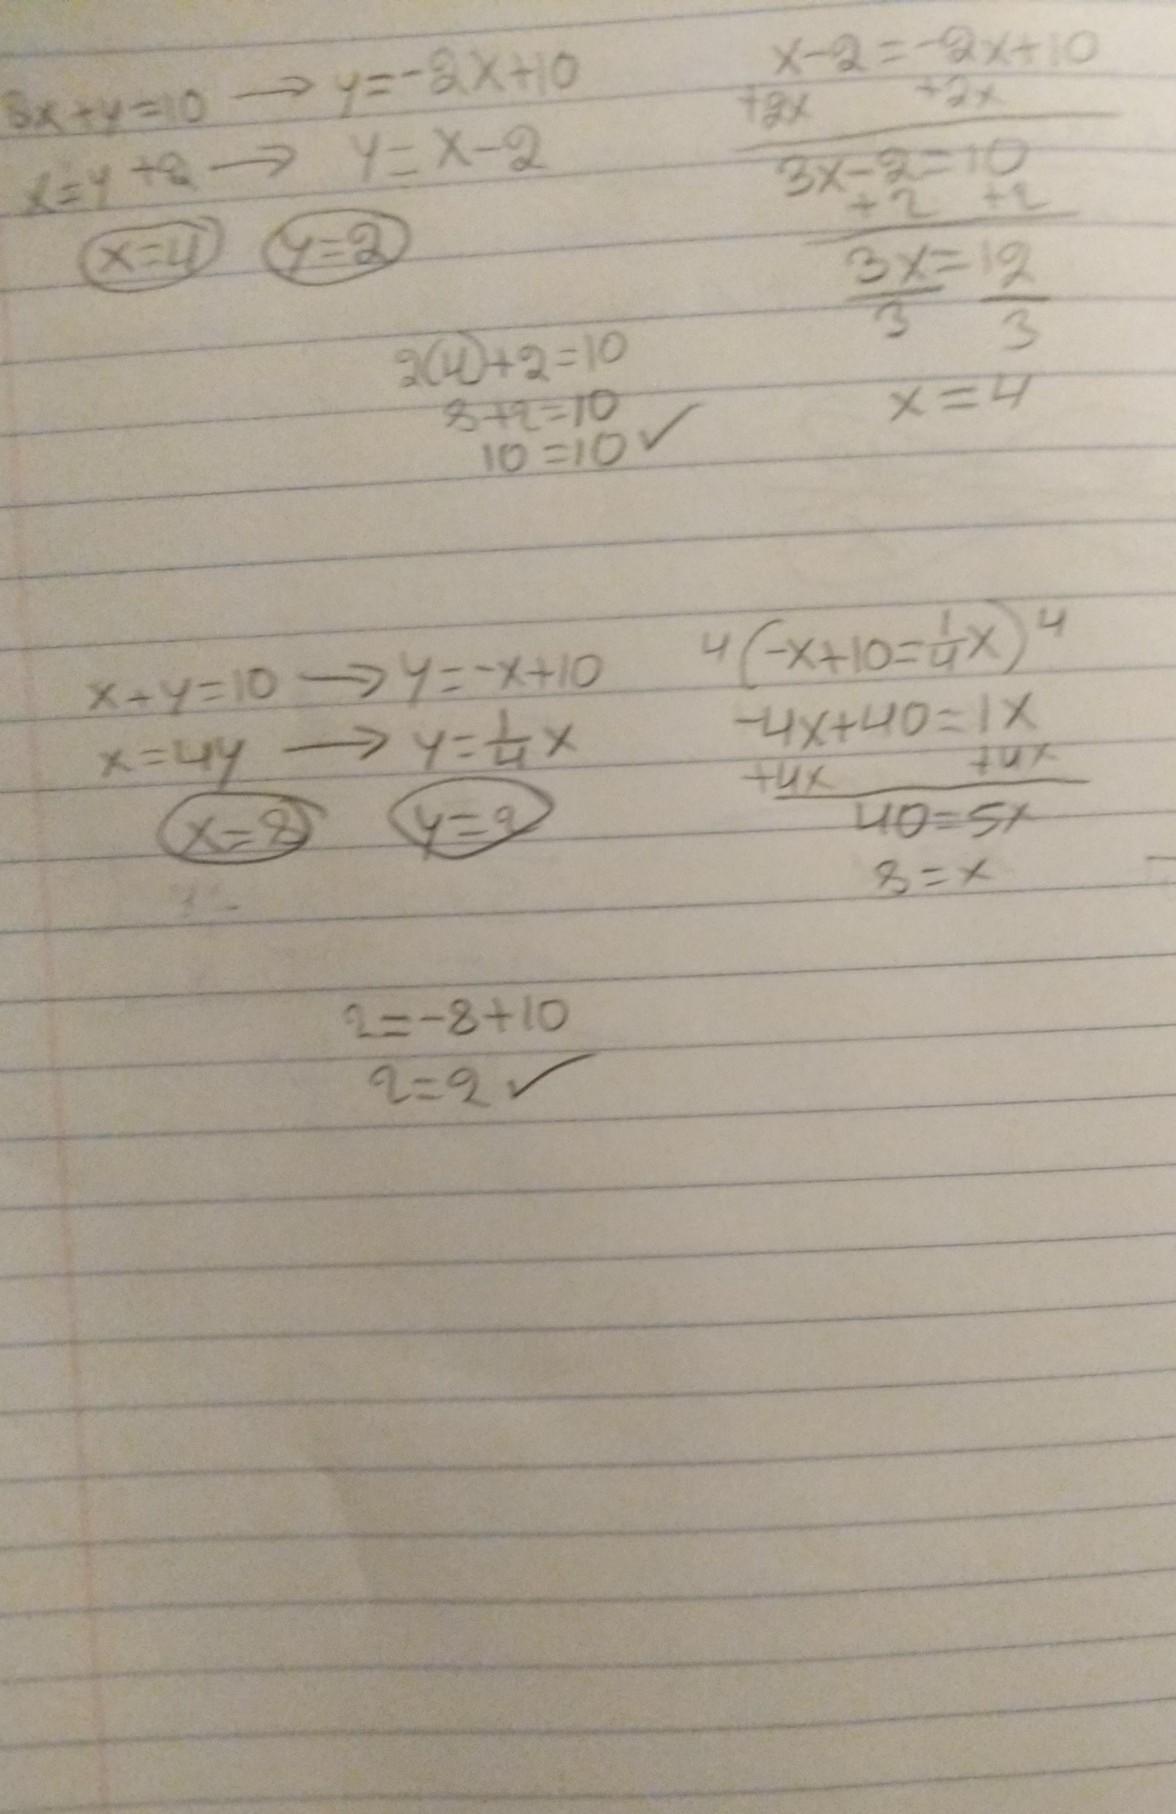 2x+y=10 → y=-2x+10
x=y+2 → y=x-2
x=4 y=2
x-2=-2x+10
+2x +2x
3x-2=10
+2 +2
3x=12
3 3
x=4
2(4)+2=10
8+2=10
10=10 ✓
x+y=10 → y=-x+10
x=4y → y=1/4x
x=8 y=2
4(-x+10=1/4x)4
-4x+40=1x
+4x +4x
40=5x
8=x
2=-8+10
2=2 ✓